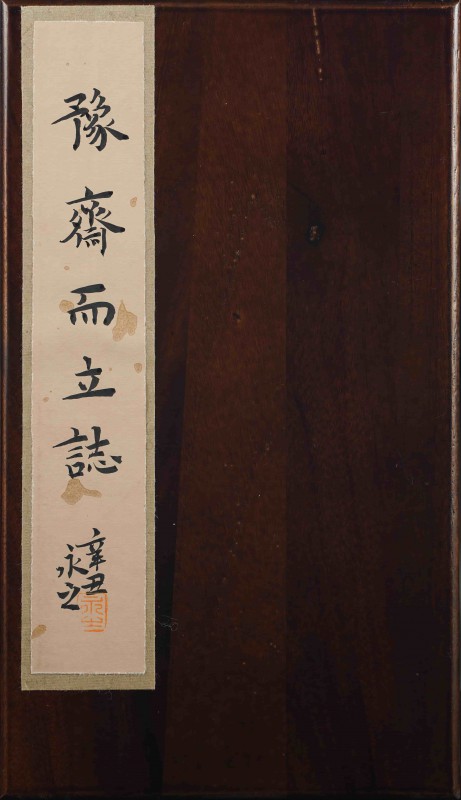 豫齋而立誌
辛丑
永之